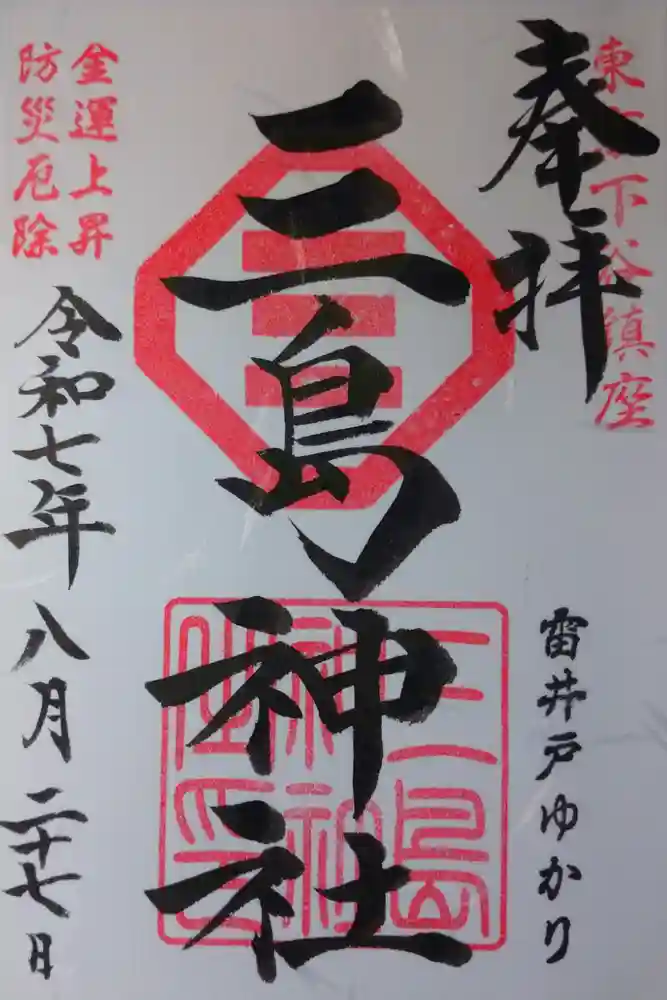 奉拝
東京下谷鎮座
雷井戸ゆかり
三島神社
三島
神社
之印
金運上昇
防災厄除
令和七年八月二十七日